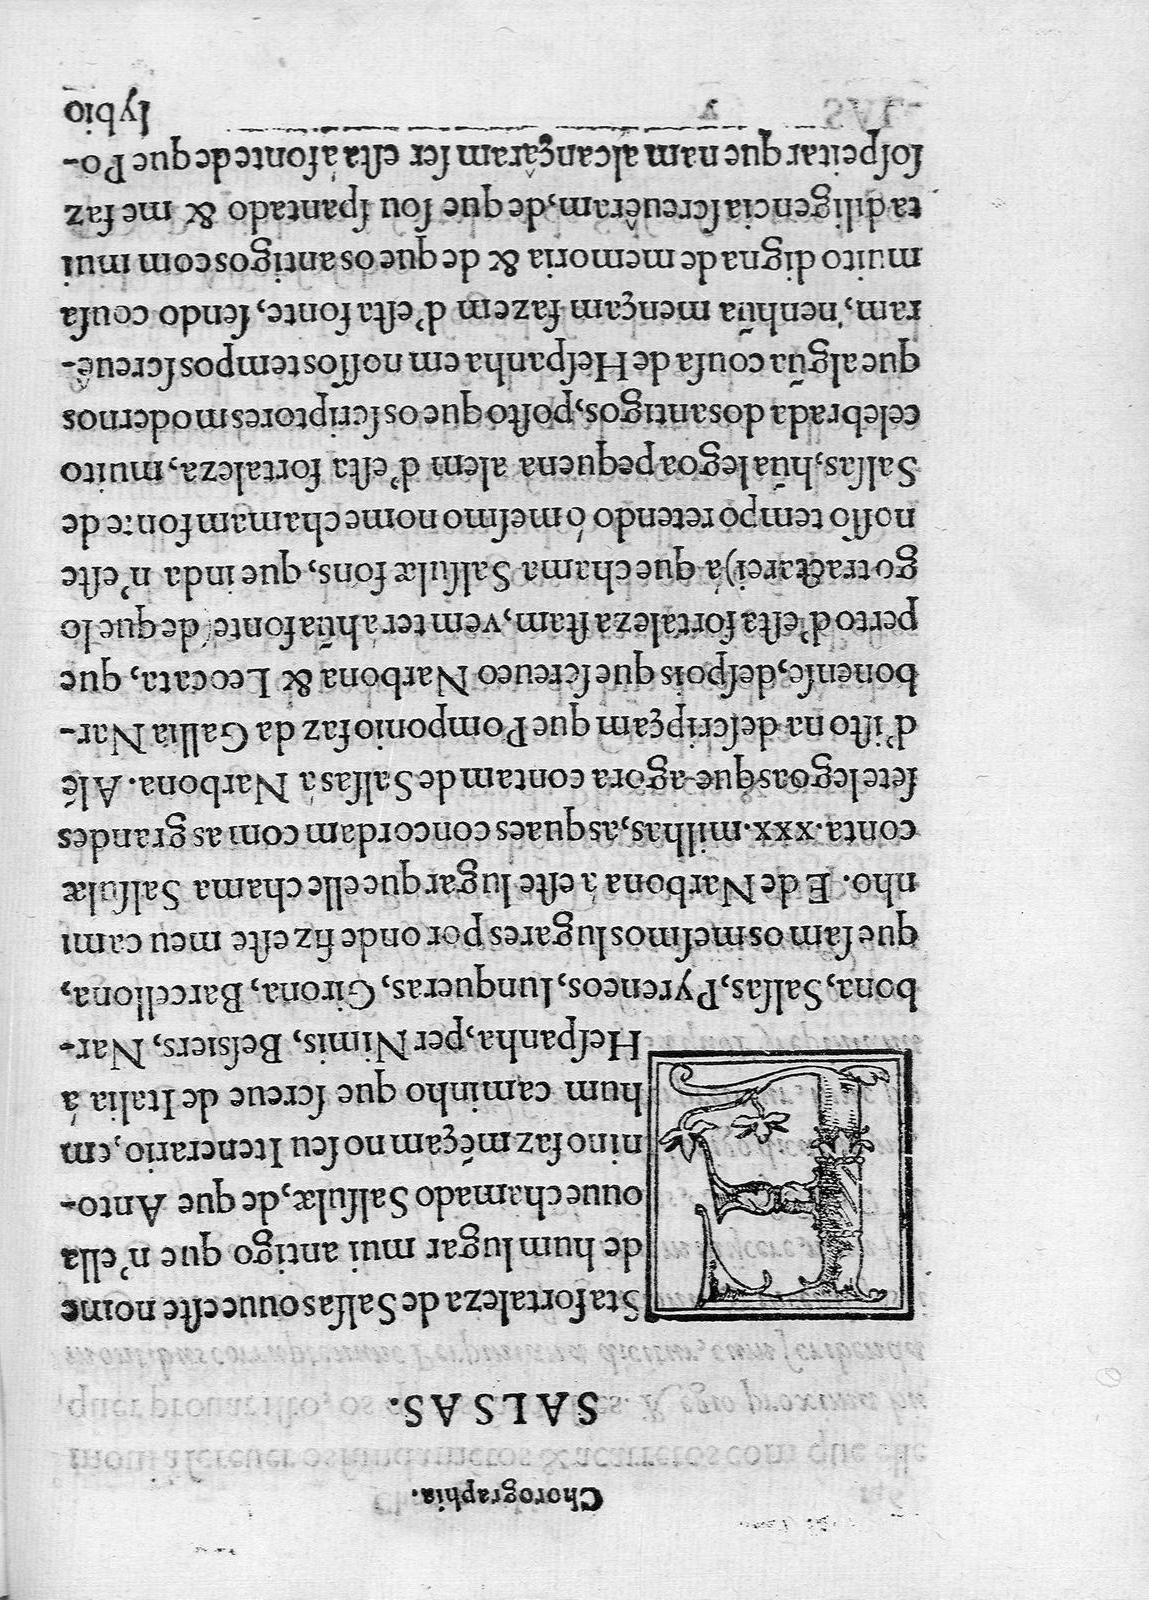 Chorographia.
SALSAS.
Esta fortaleza de Salsas ouue este nome
de hum lugar mui antigo que n'ella
ouue chamado Salsulæ, de que Anto-
nino faz mẽçam no seu Itenerario, em
hum caminho que screue de Italia á
Hespanha, per Nimis, Besiers, Nar-
bona, Salsas, Pyreneos, Iunqueras, Girona, Barcellona,
que sam os mesmos lugares por onde fiz este meu cami
nho. E de Narbona á este lugar que elle chama Salsulæ
conta .xxx. milhas, as quaes concordam com as grandes
sete legoas que agora contam de Salsas á Narbona. Alẽ
d'isto na descripçam que Pomponio faz da Gallia Nar-
bonense, despois que screueo Narbona & Leocata, que
perto d'esta fortaleza stam, vem ter a hũa fonte (de que lo
go tractarei) á que chama Salsulæ fons, que inda n'este
nosso tempo retendo ò mesmo nome chamam fonte de
Salsas, hũa legoa pequena alem d'esta fortaleza, muito
celebrada dos antigos, posto que os scriptores modernos
que algũa cousa de Hespanha em nossos tempos screuê-
ram, nenhũa mençam fazem d'esta fonte, sendo cousa
muito digna de memoria & de que os antigos com mui
ta diligencia screuêram, de que sou spantado & me faz
sospeitar que nam alcançâram ser esta á fonte de que Po-
lybio